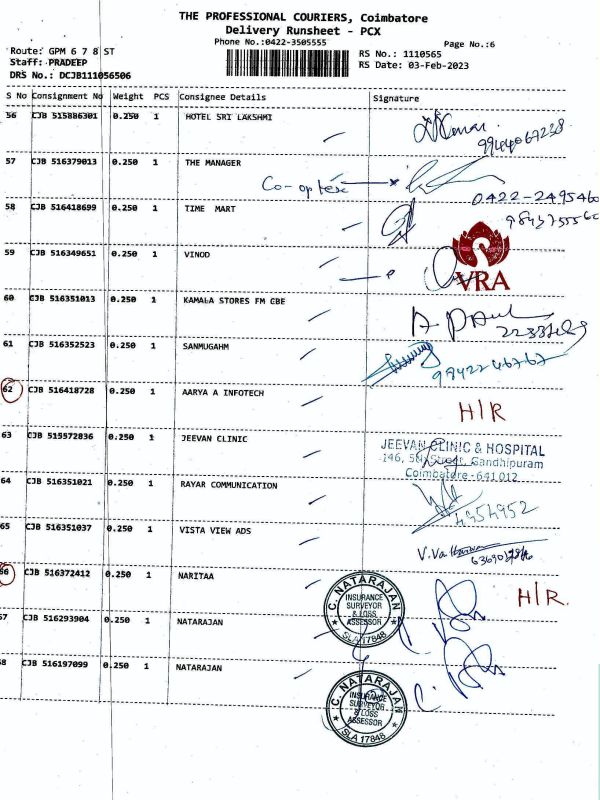 THE PROFESSIONAL COURIERS, Coimbatore
Delivery Runsheet - PCX
Phone No.:0422-3505555
Page No.:6
Route: GPM 6 7 8 ST
Staff: PRADEEP
DRS No.: DCJB111056506
RS No.: 1110565
RS Date: 03-Feb-2023
S No Consignment No Weight PCS Consignee Details Signature
56 CJB 515886301 0.250 1 HOTEL SRI LAKSHMI
57 CJB 516379013 0.250 1 THE MANAGER
0422-2495460
58 CJB 516418699 0.250 1 TIME MART
59 CJB 516349651 0.250 1 VINOD
VRA
60 CJB 516351013 0.250 1 KAMALA STORES FM CBE
61 CJB 516352523 0.250 1 SANMUGAHM
9942246767
62 CJB 516418728 0.250 1 AARYA A INFOTECH
H/R
63 CJB 515572836 0.250 1 JEEVAN CLINIC
JEEVAN CLINIC & HOSPITAL
146, 5th Street, Gandhipuram
Coimbatore - 641 012
64 CJB 516351021 0.250 1 RAYAR COMMUNICATION
4354952
65 CJB 516351037 0.250 1 VISTA VIEW ADS
66 CJB 516372412 0.250 1 NARITAA
H/R.
C. NATARAJAN
INSURANCE
SURVEYOR
& LOSS
ASSESSOR
SLA 17848
67 CJB 516293904 0.250 1 NATARAJAN
68 CJB 516197099 0.250 1 NATARAJAN
C. NATARAJAN
INSURANCE
SURVEYOR
& LOSS
ASSESSOR
SLA 17848